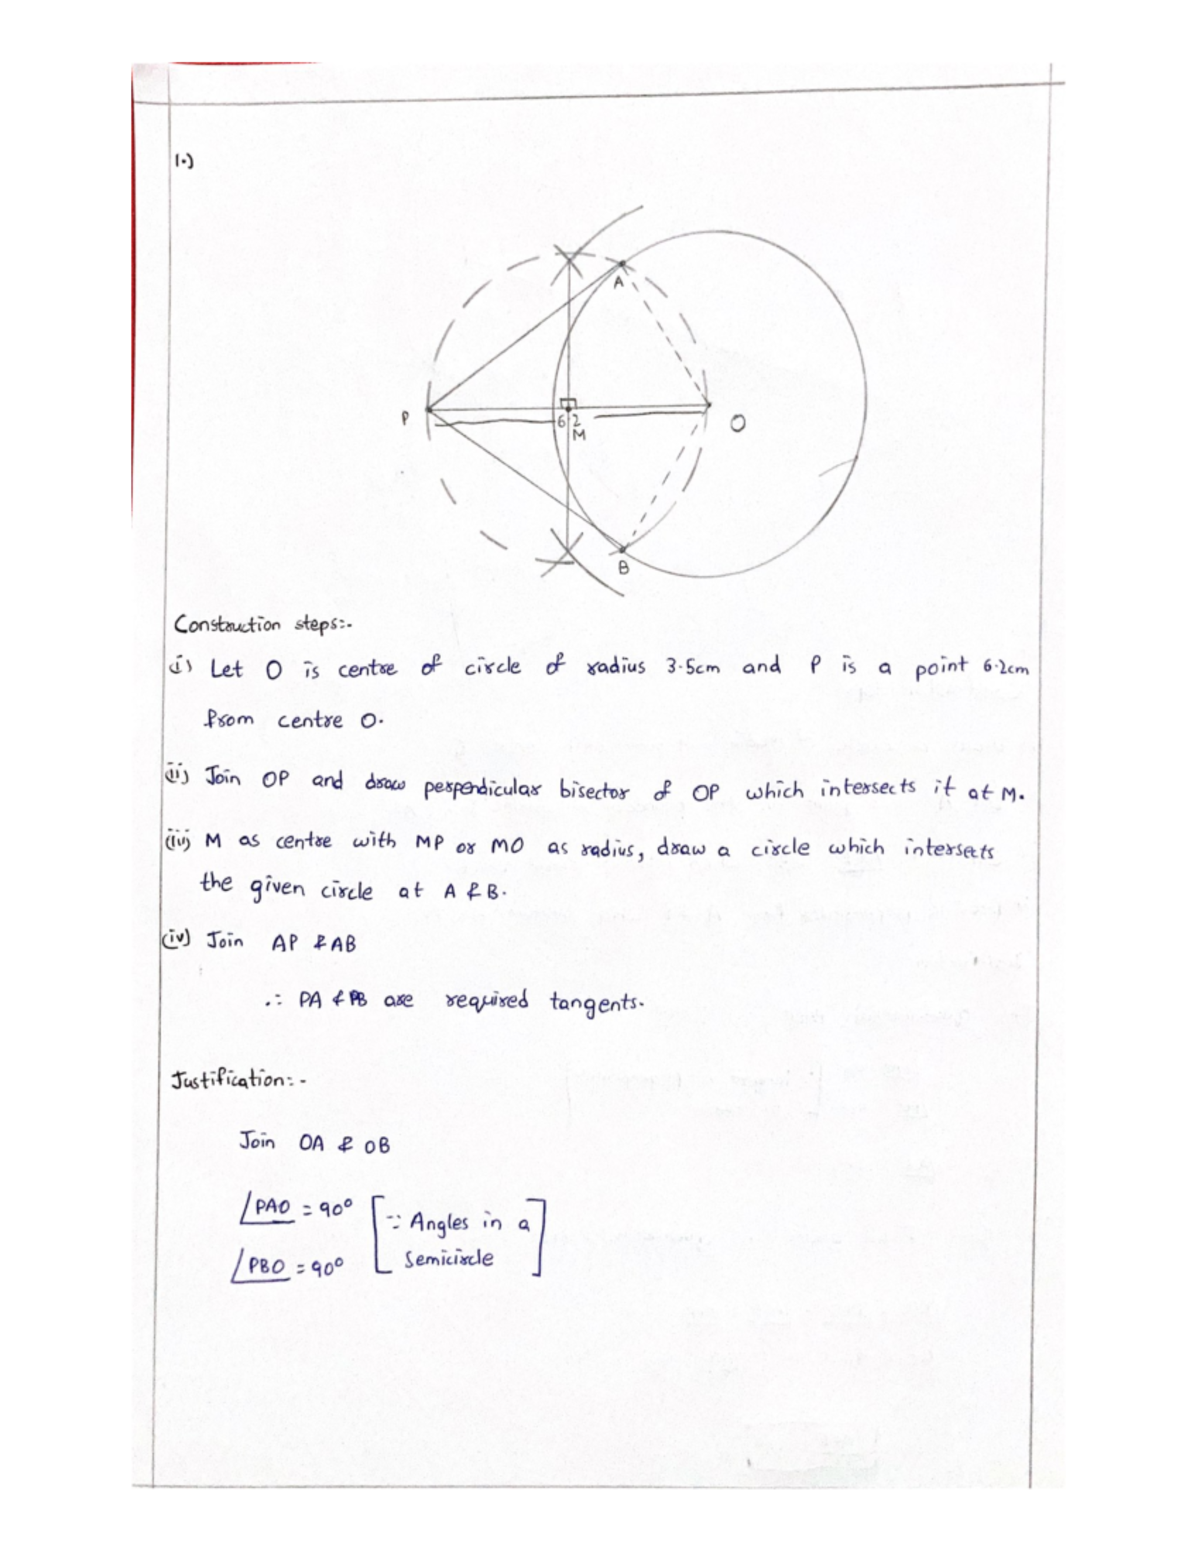 1.)
A
P
6.2
M
O
B
Construction steps:-
(i) Let O is centre of circle of radius 3.5cm and P is a point 6.2cm
from centre O.
(ii) Join OP and draw perpendicular bisector of OP which intersects it at M.
(iii) M as centre with MP or MO as radius, draw a circle which intersects
the given circle at A & B.
(iv) Join AP & AB
∴ PA & PB are required tangents.
Justification:-
Join OA & OB
∠PAO = 90° [∵ Angles in a
∠PBO = 90° Semicircle]